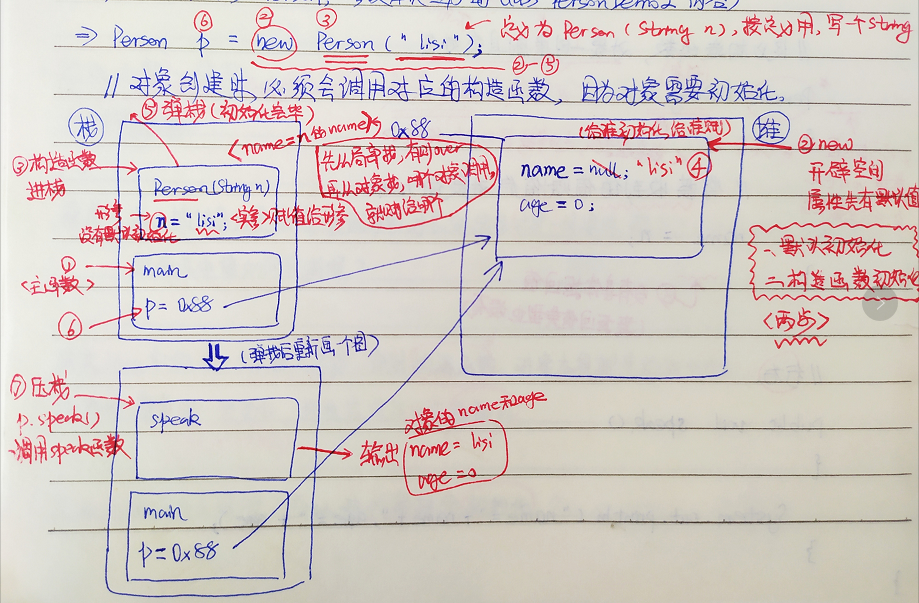 ⑥ ② ③
⇒ Person p = new Person ("lisi"); ← 定义为 Person (String n), 按定义用, 写一个String
②-⑤
// 对象创建时, 必须会调用对应的构造函数, 因为对象需要初始化。
栈
⑤弹栈(初始化完毕)
<name=n的name>
0x88
(给谁初始化,给谁调)
堆
③构造函数
进栈
Person(String n)
形参
没有默认初始化
n = "lisi"; <实参>赋值给形参
先从局部找,有时over
再从对象找,哪个对象调用,
就赋给哪个
name = null; "lisi" ④
age = 0;
②new
开辟空间
属性先有默认值
一.默认初始化
二.构造函数初始化
<两步>
①
<主函数>
main
p = 0x88
⑥
(弹栈后重新画个图)
⑦压栈
p.speak()
调用speak函数
speak
输出
对象的name和age
name = lisi
age = 0
main
p = 0x88